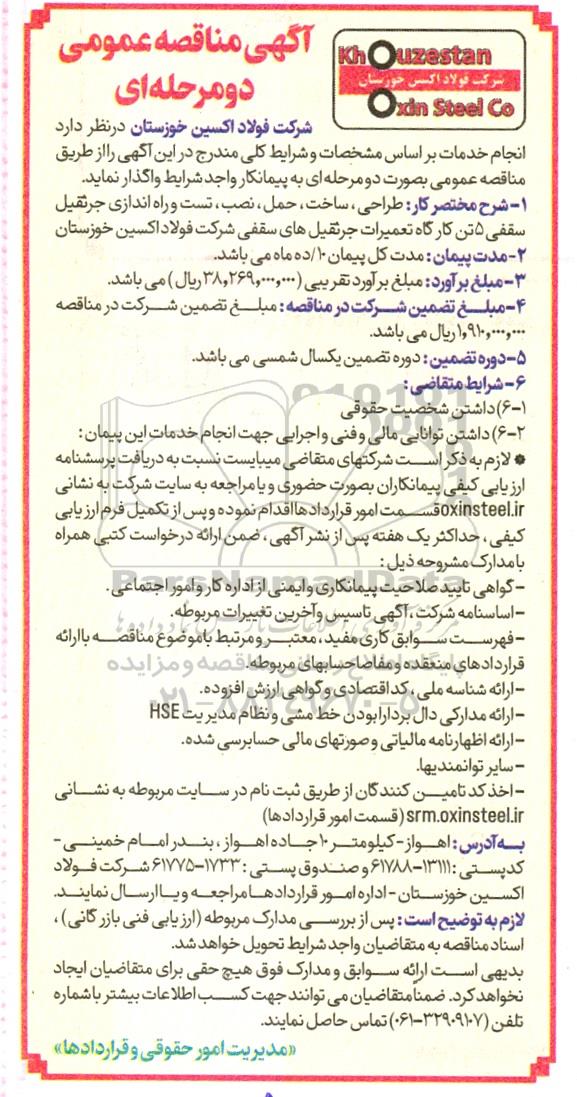 Khouzestan
شرکت فولاد اکسین خوزستان
Oxin Steel Co
آگهی مناقصه عمومی
دو مرحله‌ای
شرکت فولاد اکسین خوزستان درنظر دارد
انجام خدمات بر اساس مشخصات و شرایط کلی مندرج در این آگهی را از طریق
مناقصه عمومی بصورت دو مرحله ای به پیمانکار واجد شرایط واگذار نماید.
۱- شرح مختصر کار: طراحی، ساخت، حمل، نصب، تست و راه اندازی جرثقیل
سقفی ۵ تن کار گاه تعمیرات جرثقیل های سقفی شرکت فولاد اکسین خوزستان
۲- مدت پیمان: مدت کل پیمان ۱۰/ده ماه می باشد.
۳- مبلغ برآورد: مبلغ برآورد تقریبی (۳۸,۲۶۹,۰۰۰,۰۰۰ ریال) می باشد.
۴- مبلغ تضمین شرکت در مناقصه: مبلغ تضمین شرکت در مناقصه
۱,۹۱۰,۰۰۰,۰۰۰ ریال می باشد.
۵- دوره تضمین: دوره تضمین یکسال شمسی می باشد.
۶- شرایط متقاضی:
۶-۱) داشتن شخصیت حقوقی
۶-۲) داشتن توانایی مالی و فنی و اجرایی جهت انجام خدمات این پیمان:
* لازم به ذکر است شرکتهای متقاضی میبایست نسبت به دریافت پرسشنامه
ارزیابی کیفی پیمانکاران بصورت حضوری و یا مراجعه به سایت شرکت به نشانی
oxinsteel.ir قسمت امور قراردادها اقدام نموده و پس از تکمیل فرم ارزیابی
کیفی، حداکثر یک هفته پس از نشر آگهی، ضمن ارائه درخواست کتبی همراه
با مدارک مشروحه ذیل:
ParsNamadData
- گواهی تایید صلاحیت پیمانکاری و ایمنی از اداره کار و امور اجتماعی.
- اساسنامه شرکت، آگهی تاسیس و آخرین تغییرات مربوطه.
- فهرست سوابق کاری مفید، معتبر و مرتبط با موضوع مناقصه با ارائه
قراردادهای منعقده و مفاصا حسابهای مربوطه.
- ارائه شناسه ملی، کد اقتصادی و گواهی ارزش افزوده.
۰۲۱-۸۸۳۴۹۶۷۰-۵
- ارائه مدارکی دال بر دارا بودن خط مشی و نظام مدیریت HSE
- ارائه اظهارنامه مالیاتی و صورتهای مالی حسابرسی شده.
- سایر توانمندیها.
- اخذ کد تامین کنندگان از طریق ثبت نام در سایت مربوطه به نشانی
srm.oxinsteel.ir (قسمت امور قراردادها)
به آدرس: اهواز - کیلومتر ۱۰ جاده اهواز، بندر امام خمینی -
کدپستی: ۱۳۱۱۱-۶۱۷۸۸ و صندوق پستی: ۱۷۳۳-۶۱۷۷۵ شرکت فولاد
اکسین خوزستان - اداره امور قراردادها مراجعه و یا ارسال نمایند.
لازم به توضیح است: پس از بررسی مدارک مربوطه (ارزیابی فنی بازرگانی)،
اسناد مناقصه به متقاضیان واجد شرایط تحویل خواهد شد.
بدیهی است ارائه سوابق و مدارک فوق هیچ حقی برای متقاضیان ایجاد
نخواهد کرد. ضمناً متقاضیان می توانند جهت کسب اطلاعات بیشتر با شماره
تلفن (۳۲۹۰۹۱۰۷-۰۶۱) تماس حاصل نمایند.
«مدیریت امور حقوقی و قراردادها»